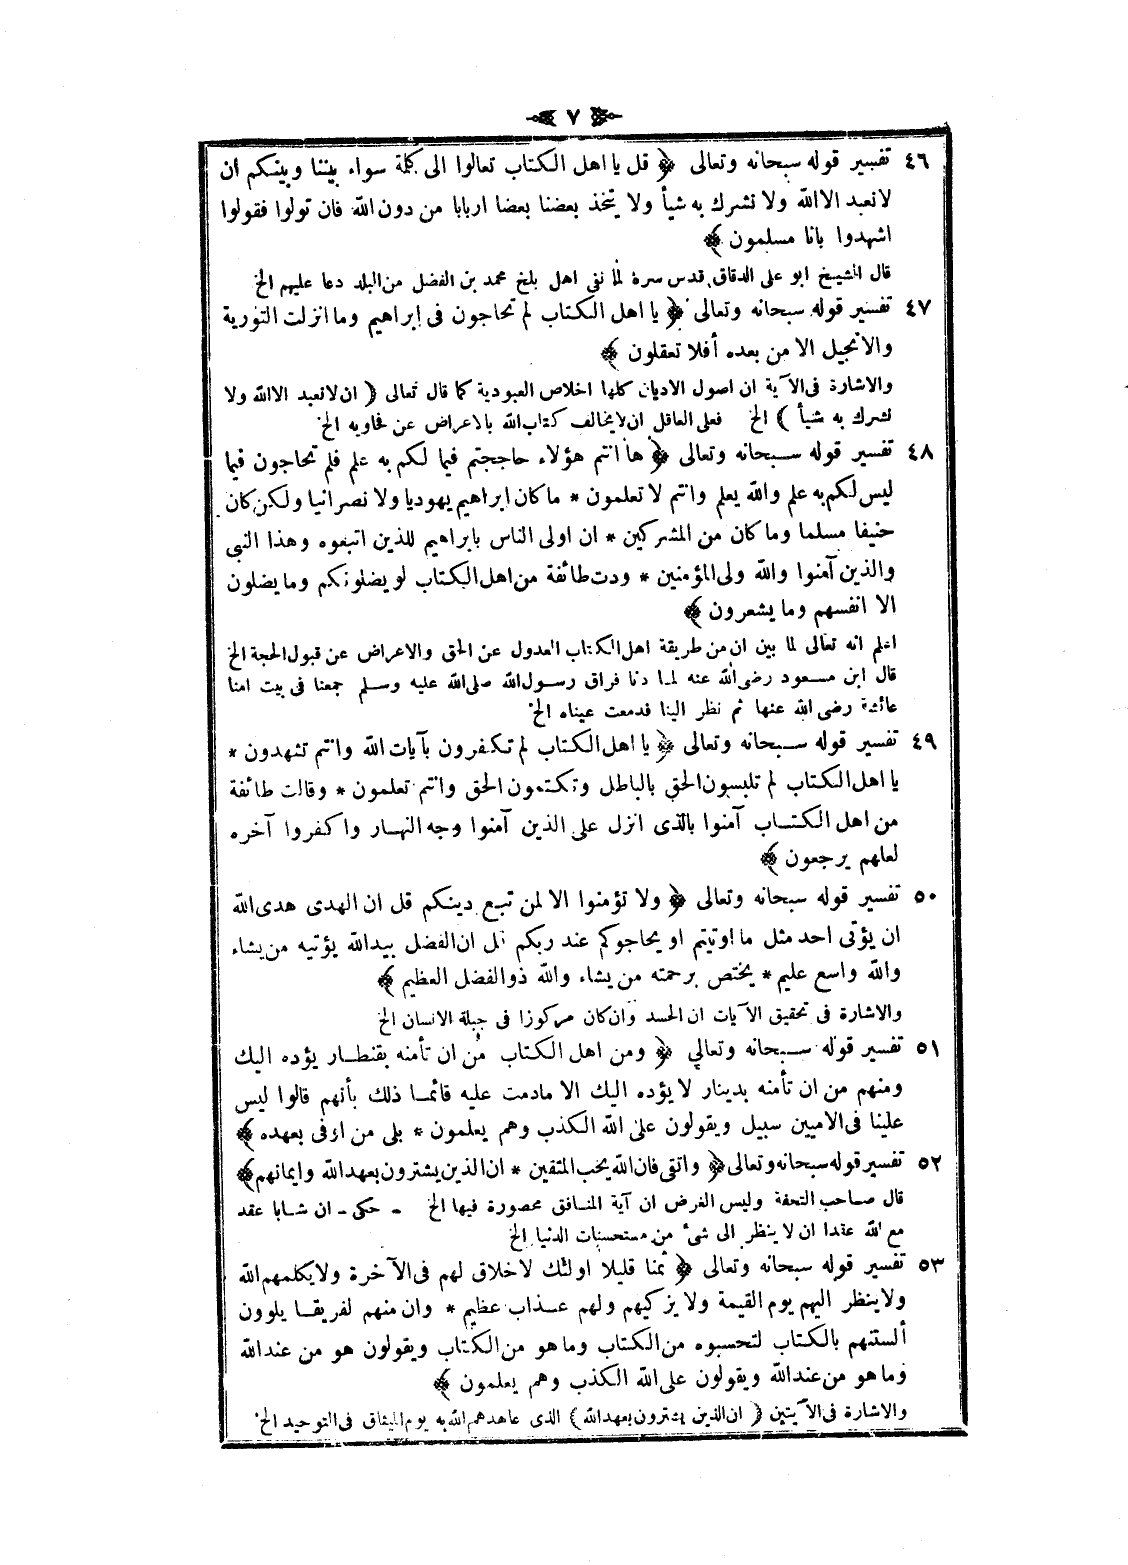 ٧
٤٦ تفسير قوله سبحانه وتعالى ﴿ قل يا اهل الكتاب تعالوا الى كلمة سواء بيننا وبينكم ان
لا نعبد الا الله ولا نشرك به شيأ ولا يتخذ بعضنا بعضا اربابا من دون الله فان تولوا فقولوا
اشهدوا بانا مسلمون ﴾
قال الشيخ ابو على الدقاق قدس سره لما نفى اهل بلخ محمد بن الفضل من البلد دعا عليهم الخ
٤٧ تفسير قوله سبحانه وتعالى ﴿ يا اهل الكتاب لم تحاجون فى ابراهيم وما انزلت التورية
والانجيل الا من بعده أفلا تعقلون ﴾
والاشارة فى الآية ان اصول الاديان كلها اخلاص العبودية كما قال تعالى ( ان لا نعبد الا الله ولا
نشرك به شيأ ) الخ فعلى العاقل ان لا يخالف كتاب الله بالاعراض عن فحاويه الخ
٤٨ تفسير قوله سبحانه وتعالى ﴿ ها انتم هؤلاء حاججتم فيما لكم به علم فلم تحاجون فيما
ليس لكم به علم والله يعلم وانتم لا تعلمون * ما كان ابراهيم يهوديا ولا نصرانيا ولكن كان
حنيفا مسلما وما كان من المشركين * ان اولى الناس بابراهيم للذين اتبعوه وهذا النبى
والذين آمنوا والله ولى المؤمنين * ودت طائفة من اهل الكتاب لو يضلونكم وما يضلون
الا انفسهم وما يشعرون ﴾
اعلم انه تعالى لما بين ان من طريقة اهل الكتاب العدول عن الحق والاعراض عن قبول الحجة الخ
قال ابن مسعود رضى الله عنه لما دنا فراق رسول الله صلى الله عليه وسلم جمعنا فى بيت امنا
عائشة رضى الله عنها ثم نظر الينا فدمعت عيناه الخ
٤٩ تفسير قوله سبحانه وتعالى ﴿ يا اهل الكتاب لم تكفرون بآيات الله وانتم تشهدون *
يا اهل الكتاب لم تلبسون الحق بالباطل وتكتمون الحق وانتم تعلمون * وقالت طائفة
من اهل الكتاب آمنوا بالذى انزل على الذين آمنوا وجه النهار واكفروا آخره
لعلهم يرجعون ﴾
٥٠ تفسير قوله سبحانه وتعالى ﴿ ولا تؤمنوا الا لمن تبع دينكم قل ان الهدى هدى الله
ان يؤتى احد مثل ما اوتيتم او يحاجوكم عند ربكم قل ان الفضل بيد الله يؤتيه من يشاء
والله واسع عليم * يختص برحمته من يشاء والله ذو الفضل العظيم ﴾
والاشارة فى تحقيق الآيات ان الحسد وان كان مركوزا فى جبلة الانسان الخ
٥١ تفسير قوله سبحانه وتعالى ﴿ ومن اهل الكتاب من ان تأمنه بقنطار يؤده اليك
ومنهم من ان تأمنه بدينار لا يؤده اليك الا مادمت عليه قائما ذلك بأنهم قالوا ليس
علينا فى الاميين سبيل ويقولون على الله الكذب وهم يعلمون * بلى من اوفى بعهده ﴾
٥٢ تفسير قوله سبحانه وتعالى ﴿ واتقى فان الله يحب المتقين * ان الذين يشترون بعهد الله وايمانهم ﴾
قال صاحب التحفة وليس الغرض ان آية المنافق محصورة فيها الخ - حكى - ان شابا عقد
مع الله عقدا ان لا ينظر الى شئ من مستحسنات الدنيا الخ
٥٣ تفسير قوله سبحانه وتعالى ﴿ ثمنا قليلا اولئك لا خلاق لهم فى الآخرة ولا يكلمهم الله
ولا ينظر اليهم يوم القيمة ولا يزكيهم ولهم عذاب عظيم * وان منهم لفريقا يلوون
ألسنتهم بالكتاب لتحسبوه من الكتاب وما هو من الكتاب ويقولون هو من عند الله
وما هو من عند الله ويقولون على الله الكذب وهم يعلمون ﴾
والاشارة فى الآيتين ( ان الذين يشترون بعهد الله ) الذى عاهدهم الله به يوم الميثاق فى التوحيد الخ